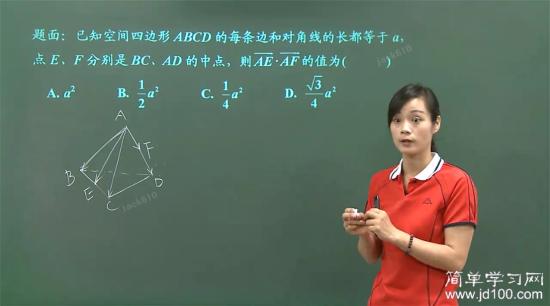 题面：已知空间四边形 ABCD 的每条边和对角线的长都等于 a，
点 E、F 分别是 BC、AD 的中点，则 AE·AF 的值为(
A. a² B. 1/2 a² C. 1/4 a² D. √3/4 a²
A
F
B
E
D
C
jack610
jack610
简单学习网
www.jd100.com